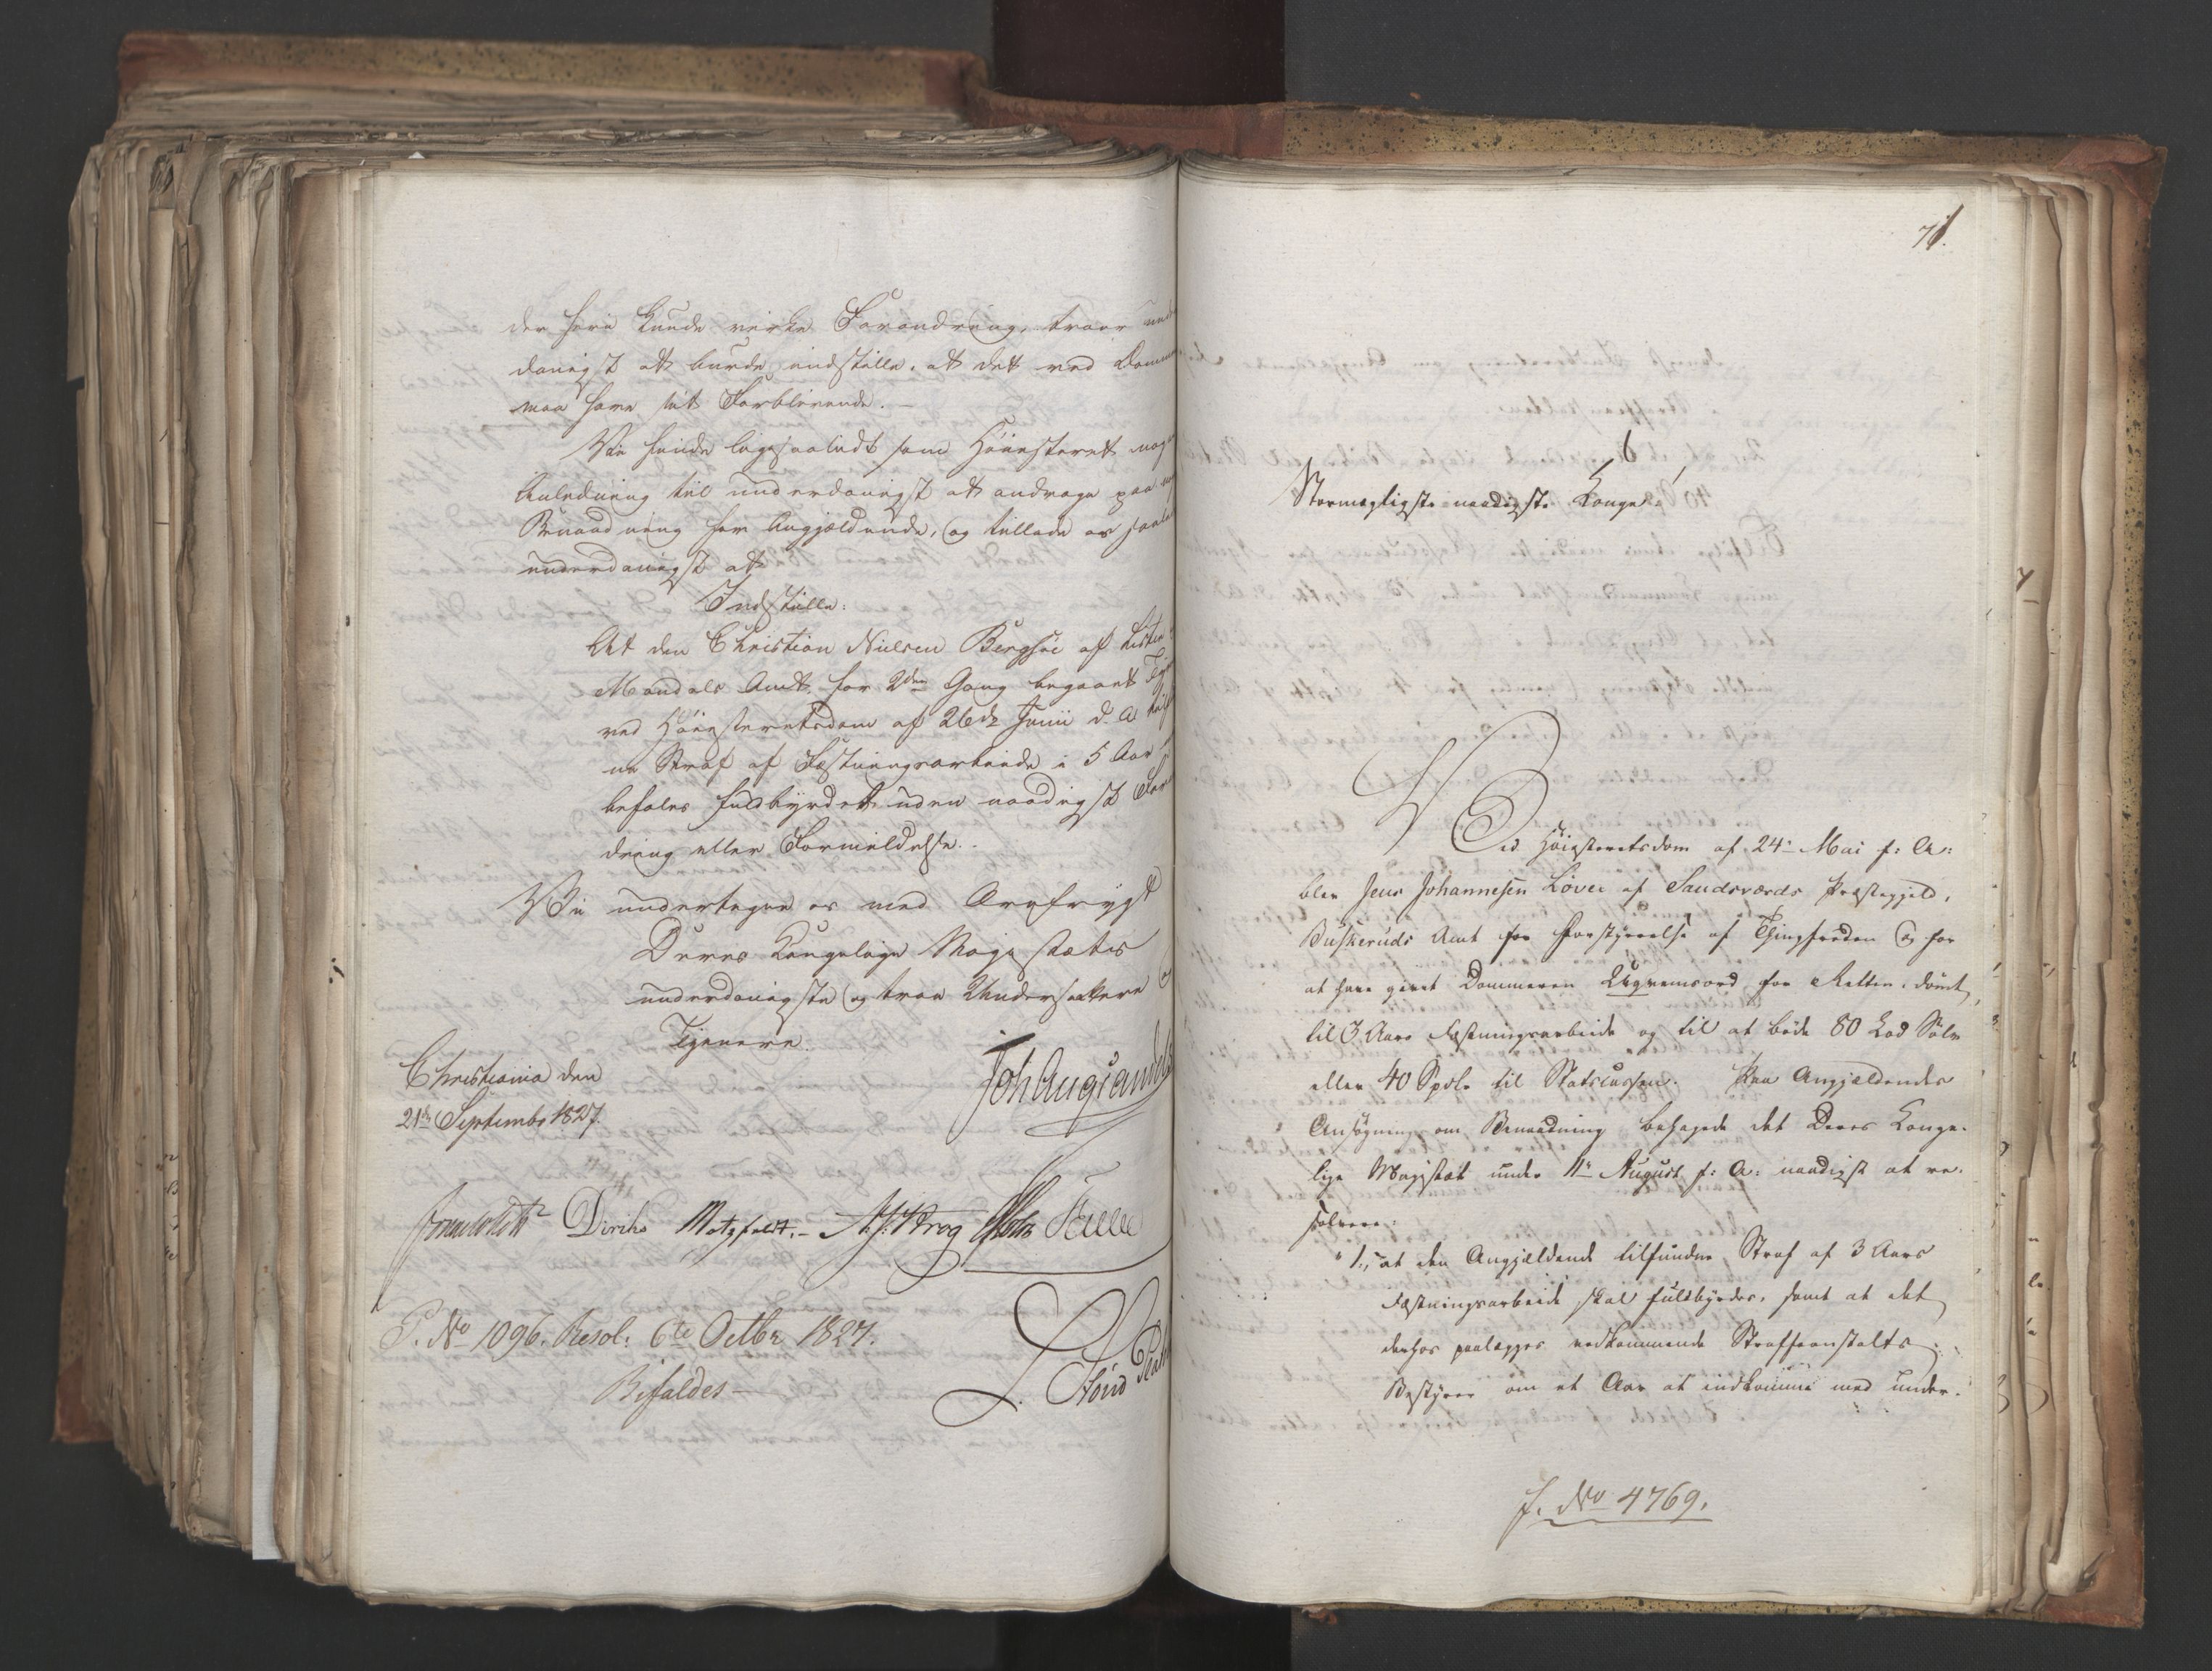 der heri kunde virke Forandring, troer und
danigst at burde indstille, at det ved Dommen
maa have sit Forblivende. —
Vi finde ligesaalidt som Höiesteret nogen
Anledning til underdanigst at andrage paa
Benaadning for Angjældende, og tillade os saaled
underdanigst at
Indstille:
At den Christian Nielsen Bergsöe af Lister
Mandals Amt for 2den Gang begaaet Tyv
ved Höiesteretsdom af 26de Junii d. A. til
ne Straf af Fæstningsarbeide i 5 Aar
befales fuldbyrdet uden naadigst Foran
dring eller Formildelse. -
Vi undertegne os med Ærefrygt
Deres Kongelige Majestæts
underdanigste og troe Undersaatter og
Tjenere.
Christiania den
21de Septembr 1827.
Joh Aug Sandels
Diriks Motzfeldt. – Krog Holst
P. No 1096. Resol: 6te Octbr 1827.
Bifaldes —
71.
Stormægtigste naadigste Konge!
Ved Höiesteretsdom af 24de Mai f: A:
blev Jens Johannesen Løver af Sandsværds Præstegjeld,
Buskeruds Amt for Forstyrrelse af Thingfreden og for
at have givet Dommeren Uqvemsord for Retten, dömt
til 3 Aars Fæstningsarbeide og til at böde 80 Lod Sölv
eller 40 Spdlr til Statscassen. Paa Angjældendes
Ansögning om Benaadning behagede det Deres Konge-
lige Majestæt under 11te August f: A: naadigst at re-
solvere:
"1., at den Angjældende tilfundne Straf af 3 Aars
Fæstningsarbeide skal fuldbyrdes, samt at det
derhos paalægges vedkommende Straffeanstalts
Bestyrer om et Aar at indkomme med under-
J. No 4769.